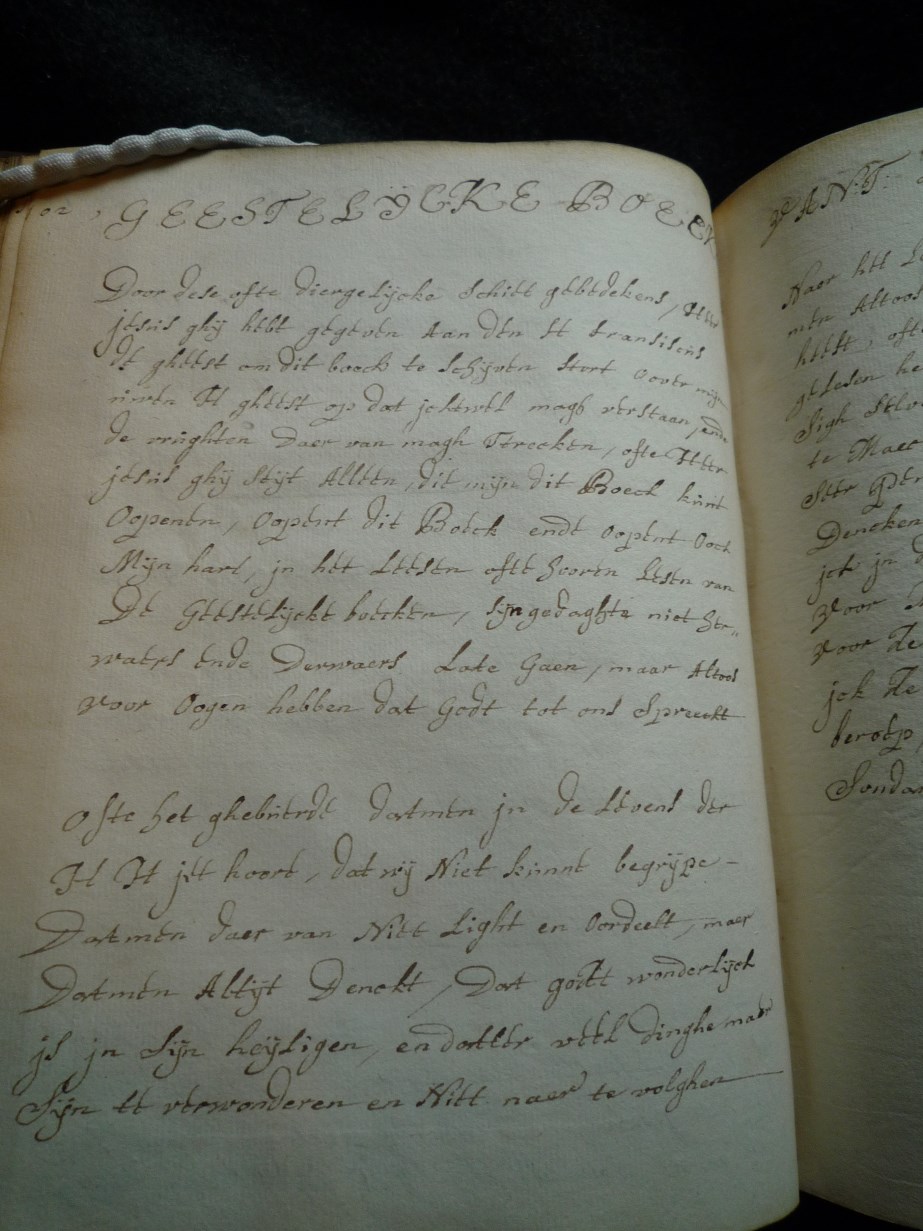 102, GEESTELYCKE BOEC
Door dese ofte diergelijcke schiet gebedekens, Heer
jesus ghij hebt gegeven Aan den H fransisus
de gheest om dit boeck te schijven stort Oover mijn
uwen H gheest op dat jcktwel magh verstaan, ende
de vrughten Daer van magh Trecken, ofte Heer
jesus ghij seijt Alleen, die mijn dit Boeck kunt
Oopenen, Oopent dit Boeck ende Oopent Oock
Mijn hart, jn het Leesen ofte hooren Lesen van
De Geestelijcke boecken, sijn gedaghte niet her„
waers ende Derwaers Late Gaen, maar Altoos
voor Oogen hebben dat Godt tot ons Spreeckt
ofte het ghebuerde datmen jn de Levens der
H H jet hoort, dat wij Niet kunnt begrijpe-
Datmen daer van Niet Light en Oordeelt, maer
Datmen Altijt Denckt, Dat godt wonderlijck
js jn Sijn heijligen, en datter veel dinghe maer
Sijn te verwonderen en Niet naer te volghen
VANT
Naer het Le
men Altoos
heeft, oft
gelesen he
Sigh selve
te Maec
Seer
Dencken
jck jn d
Voor
voor He
jck He
beroep
Sondar